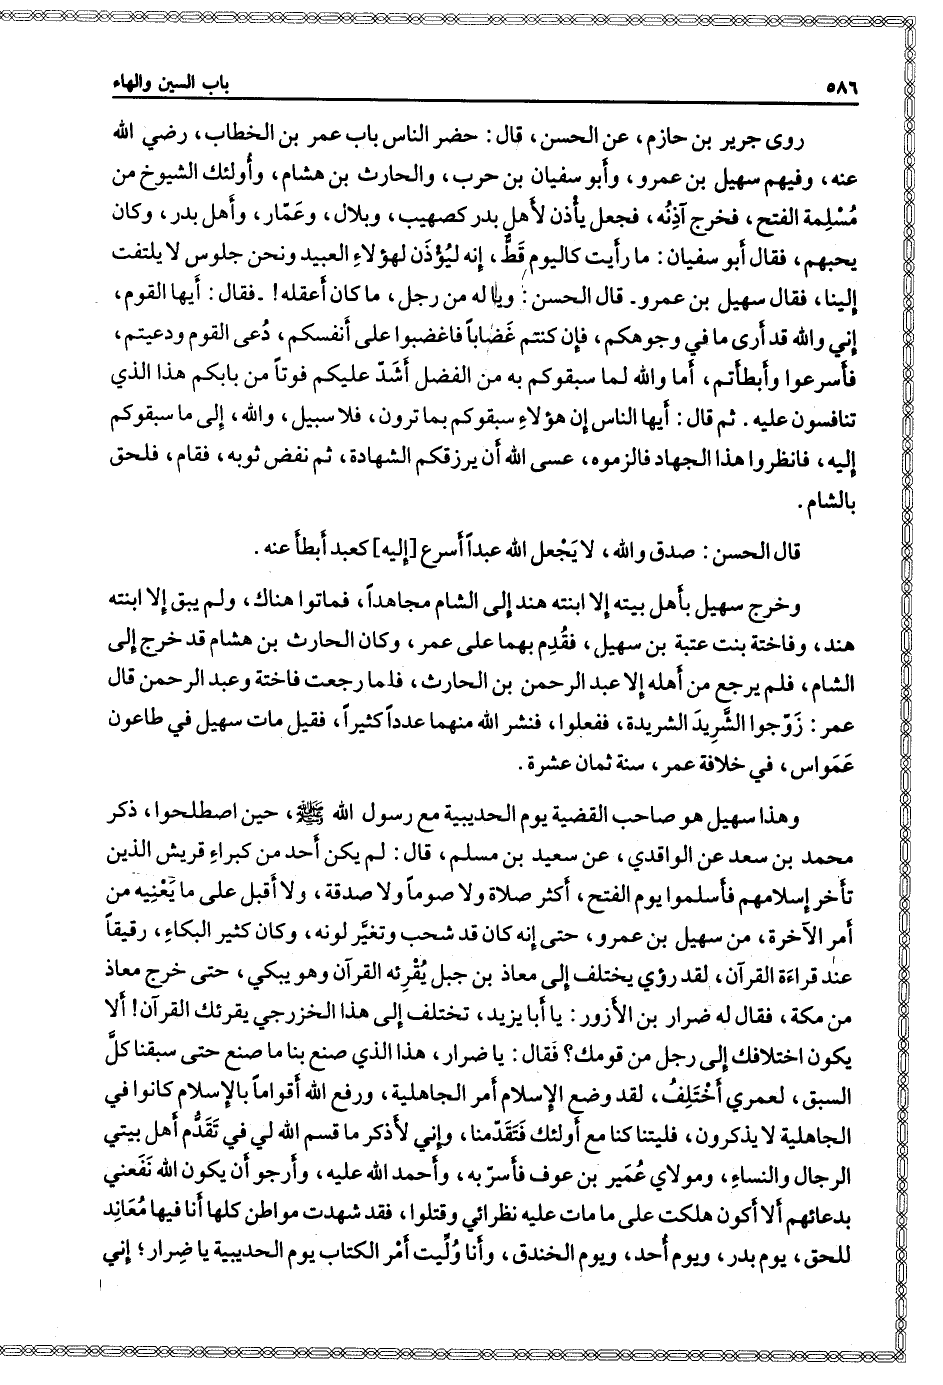 ٥٨٦ باب السين والهاء
روى جرير بن حازم، عن الحسن، قال: حضر الناس باب عمر بن الخطاب، رضي الله
عنه، وفيهم سهيل بن عمرو، وأبو سفيان بن حرب، والحارث بن هشام، وأُولئك الشيوخ من
مُسْلِمة الفتح، فخرج آذِنُه، فجعل يأْذن لأهل بدر كصهيب، وبلال، وعَمّار، وأهل بدر، وكان
يحبهم، فقال أبو سفيان: ما رأيت كاليوم قَطُّ، إنه ليُؤْذَن لهؤلاءِ العبيد ونحن جلوس لا يلتفت
إلينا، فقال سهيل بن عمرو ـ قال الحسن: ويا له من رجل، ما كان أعقله! ـ فقال: أيها القوم،
إني والله قد أرى ما في وجوهكم، فإن كنتم غَضَاباً فاغضبوا على أنفسكم، دُعى القوم ودعيتم،
فأسرعوا وأبطأتم، أما والله لما سبقوكم به من الفضل أَشَدّ عليكم فوتاً من بابكم هذا الذي
تنافسون عليه. ثم قال: أيها الناس إن هؤلاءِ سبقوكم بما ترون، فلا سبيل، والله، إلى ما سبقوكم
إليه، فانظروا هذا الجهاد فالزموه، عسى الله أن يرزقكم الشهادة، ثم نفض ثوبه، فقام، فلحق
بالشام.
قال الحسن: صدق والله، لا يَجْعل الله عبداً أسرع [إليه] كعبد أبطأ عنه.
وخرج سهيل بأهل بيته إلا ابنته هند إلى الشام مجاهداً، فماتوا هناك، ولم يبق إلا ابنته
هند، وفاختة بنت عتبة بن سهيل، فقُدِم بهما على عمر، وكان الحارث بن هشام قد خرج إلى
الشام، فلم يرجع من أهله إلا عبد الرحمن بن الحارث، فلما رجعت فاختة وعبد الرحمن قال
عمر: زَوّجوا الشَّرِيدَ الشريدة، ففعلوا، فنشر الله منهما عدداً كثيراً، فقيل مات سهيل في طاعون
عَمَواس، في خلافة عمر، سنة ثمان عشرة.
وهذا سهيل هو صاحب القضية يوم الحديبية مع رسول الله ﷺ، حين اصطلحوا، ذكر
محمد بن سعد عن الواقدي، عن سعيد بن مسلم، قال: لم يكن أحد من كبراءِ قريش الذين
تأخر إسلامهم فأسلموا يوم الفتح، أكثر صلاة ولا صوماً ولا صدقة، ولا أقبل على ما يَعْنِيه من
أمر الآخرة، من سهيل بن عمرو، حتى إنه كان قد شحب وتغيَّر لونه، وكان كثير البكاءِ، رقيقاً
عند قراءَة القرآن، لقد رؤي يختلف إلى معاذ بن جبل يُقْرِئه القرآن وهو يبكي، حتى خرج معاذ
من مكة، فقال له ضرار بن الأزور: يا أبا يزيد، تختلف إلى هذا الخزرجي يقرئك القرآن! ألا
يكون اختلافك إلى رجل من قومك؟ فقال: يا ضرار، هذا الذي صنع بنا ما صنع حتى سبقنا كلَّ
السبق، لعمري أَخْتَلِفُ، لقد وضع الإسلام أمر الجاهلية، ورفع الله أقواماً بالإسلام كانوا في
الجاهلية لا يذكرون، فليتنا كنا مع أولئك فَتَقَدّمنا، وإني لأذكر ما قسم الله لي في تَقَدُّم أهل بيتي
الرجال والنساءِ، ومولاي عُمَير بن عوف فأسرّ به، وأحمد الله عليه، وأرجو أن يكون الله نَفَعني
بدعائهم ألا أكون هلكت على ما مات عليه نظرائي وقتلوا، فقد شهدت مواطن كلها أنا فيها مُعَانِد
للحق، يوم بدر، ويوم أُحد، ويوم الخندق، وأنا وُلِّيت أَمْر الكتاب يوم الحديبية يا ضِرار؛ إني